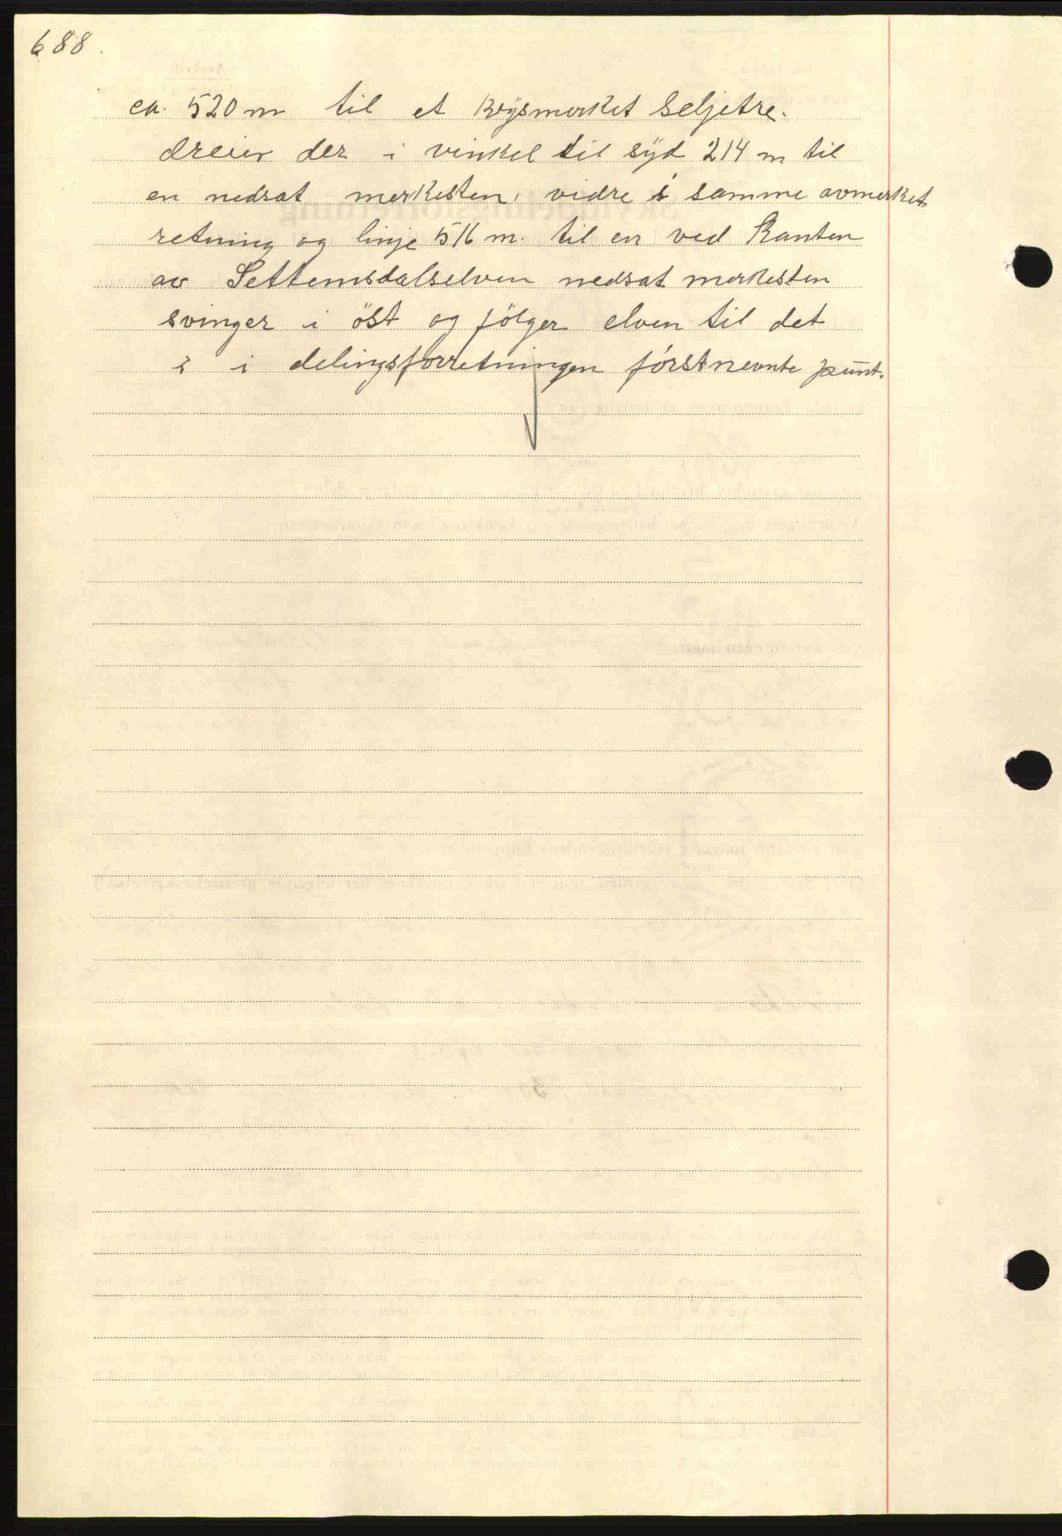 688.
ca. 520 m til et krysmerket Seljetre.
dreier der i vinkel til syd 214 m til
en nedsat merkesten, vidre i samme avmerket
retning og linje 516 m. til en ved Kanten
av Settemsdalselven nedsat merkesten
svinger i öst og fölger elven til det
i i delingsforretningen förstnevnte punt.